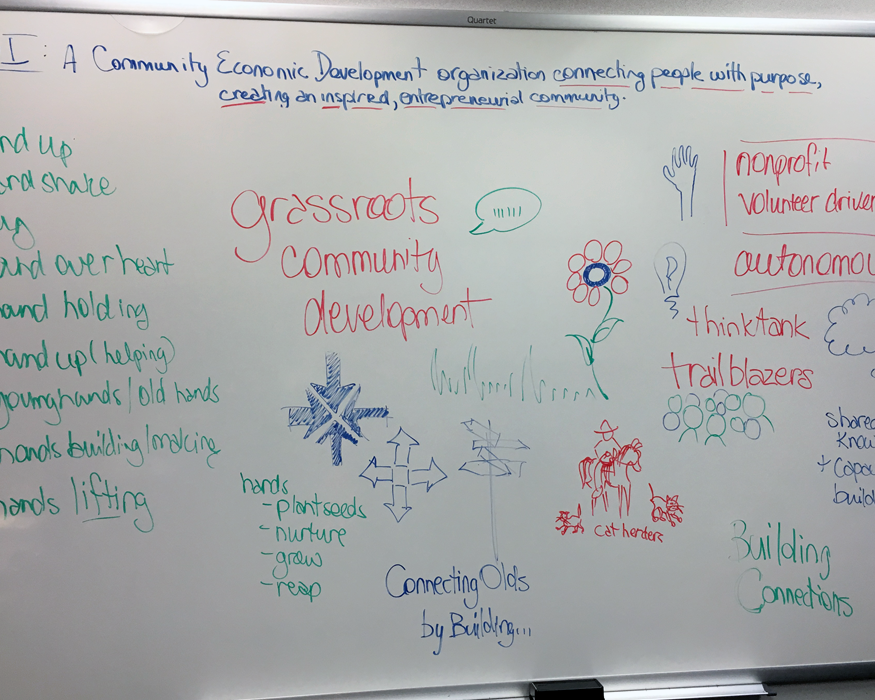 Quartet
I: A Community Economic Development organization connecting people with purpose,
creating an inspired, entrepreneurial community.
nd up
and shake
ug
and over heart
and holding
and up (helping)
young hands / old hands
hands building/making
hands lifting
grassroots
community
development
hands
- plant seeds
- nurture
- grow
- reap
Connecting Olds
by Building...
cat herders
nonprofit
volunteer driven
autonomou
thinktank
trailblazers
shared
Know
+ Capac
build
Building
Connections